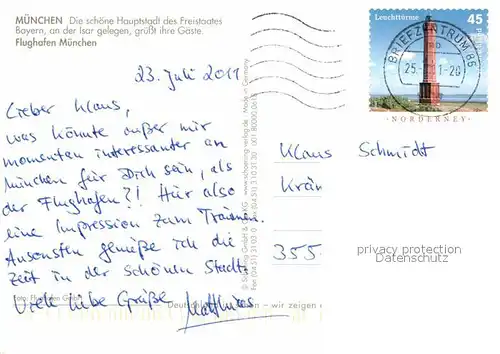 MÜNCHEN Die schöne Hauptstadt des Freistaates
Bayern, an der Isar gelegen, grüßt ihre Gäste.
Flughafen München
23. Juli 2011
Lieber Klaus,
was könnte außer mir
momentan interessanter an
München für Dich sein, als
der Flughafen?! Hier also
eine Impression zum Träumen.
Ansonsten genieße ich die
Zeit in der schönen Stadt.
Viele liebe Grüße
Matthias
Foto: Flughafen GmbH
Deutschland - wir zeigen
Made in Germany
Leuchttürme
45
NORDERNEY
BRIEFZENTRUM 86
Klaus Schmidt
Krän
355
privacy protection
Datenschutz